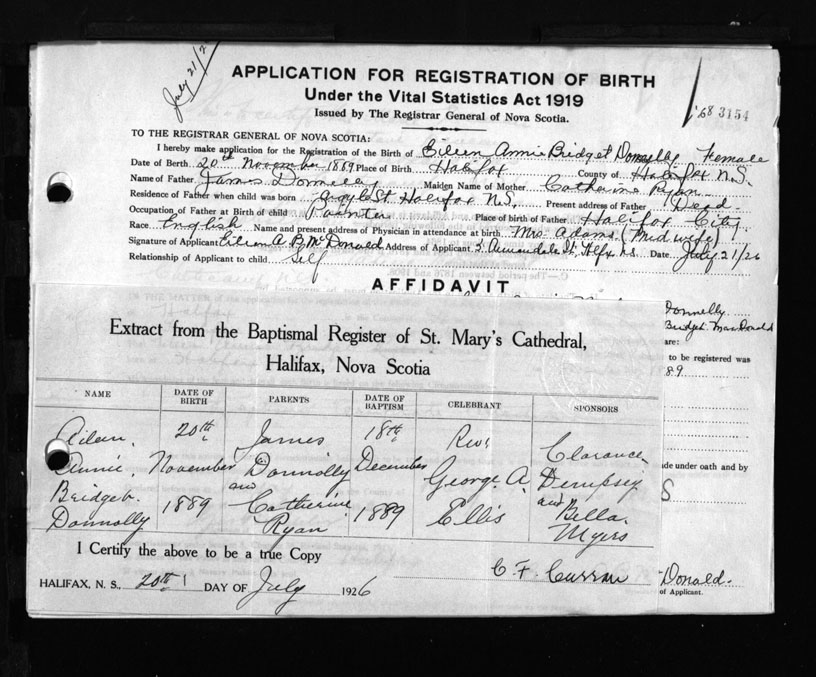 July 21/26
APPLICATION FOR REGISTRATION OF BIRTH
Under the Vital Statistics Act 1919
Issued by The Registrar General of Nova Scotia.
'68 3154
TO THE REGISTRAR GENERAL OF NOVA SCOTIA:
I hereby make application for the Registration of the Birth of Eileen Annie Bridget Donnelly Female
Date of Birth 20th November 1889 Place of Birth Halifax County of Halifax N.S.
Name of Father James Donnelly Maiden Name of Mother Catherine Ryan
Residence of Father when child was born Argyle St. Halifax N.S. Present address of Father Dead
Occupation of Father at Birth of child Painter Place of birth of Father Halifax City
Race English Name and present address of Physician in attendance at birth Mrs Adams (Mid wife)
Signature of Applicant Eileen A. B. McDonald Address of Applicant 3 Annandale St, Hlfx N.S. Date July 21/26
Relationship of Applicant to child Self
AFFIDAVIT
Donnelly
Bridget MacDonald
are:
to be registered was
89
ade under oath and by
S
Donald.
of Applicant.
Extract from the Baptismal Register of St. Mary's Cathedral,
Halifax, Nova Scotia
NAME DATE OF BIRTH PARENTS DATE OF BAPTISM CELEBRANT SPONSORS
Aileen 20th James 18th Rev. Clarance
Annie November Donnolly December George A. Dempsey
Bridget and and
Donnolly 1889 Catherine Ryan 1889 Ellis Bella Myers
I Certify the above to be a true Copy
C. F. Curran
HALIFAX, N. S., 20th DAY OF July 1926